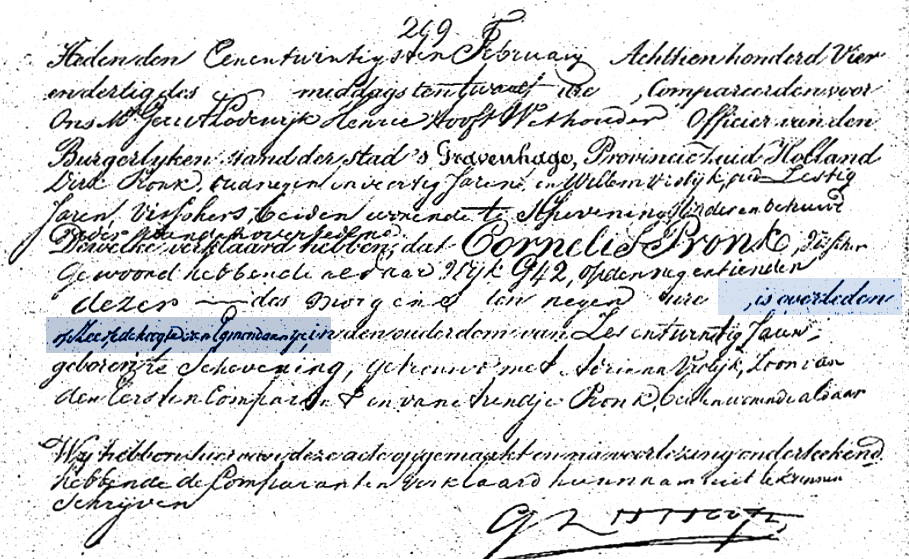 249
Heden den Eenentwintigsten February Achttienhonderd Vier
en dertig des middags ten twaalf ure, Compareerden voor
Ons Mr Lodewijk Henric Hooft Wethouder Officier van den
Burgerlyken stand der stad 's Gravenhage, Provincie Zuid Holland
Dirk Pronk, oud negen en veertig Jaren, en Willem Vrolijk, oud Zestig
Jaren, Visschers, beiden wonende te Scheveningen
Dewelke verklaard hebben, dat Cornelis Pronk, Visscher
gewoond hebbende aldaar Wijk 942, op den negentienden
dezer — des morgens ten negen ure, is overleden
op Zee op de hoogte van Egmond aan Zee in den ouderdom van Zes en twintig Jaren,
geboren te Schevening, getrouwd met Adriana Vrolijk, Zoon van
den Eersten Comparant en van Trendje Pronk, beiden wonende aldaar
Wij hebben hier van deze acte opgemaakt en na voorlezing onderteekend
hebbende de Comparanten verklaard hunnen naam niet te kunnen
Schrijven